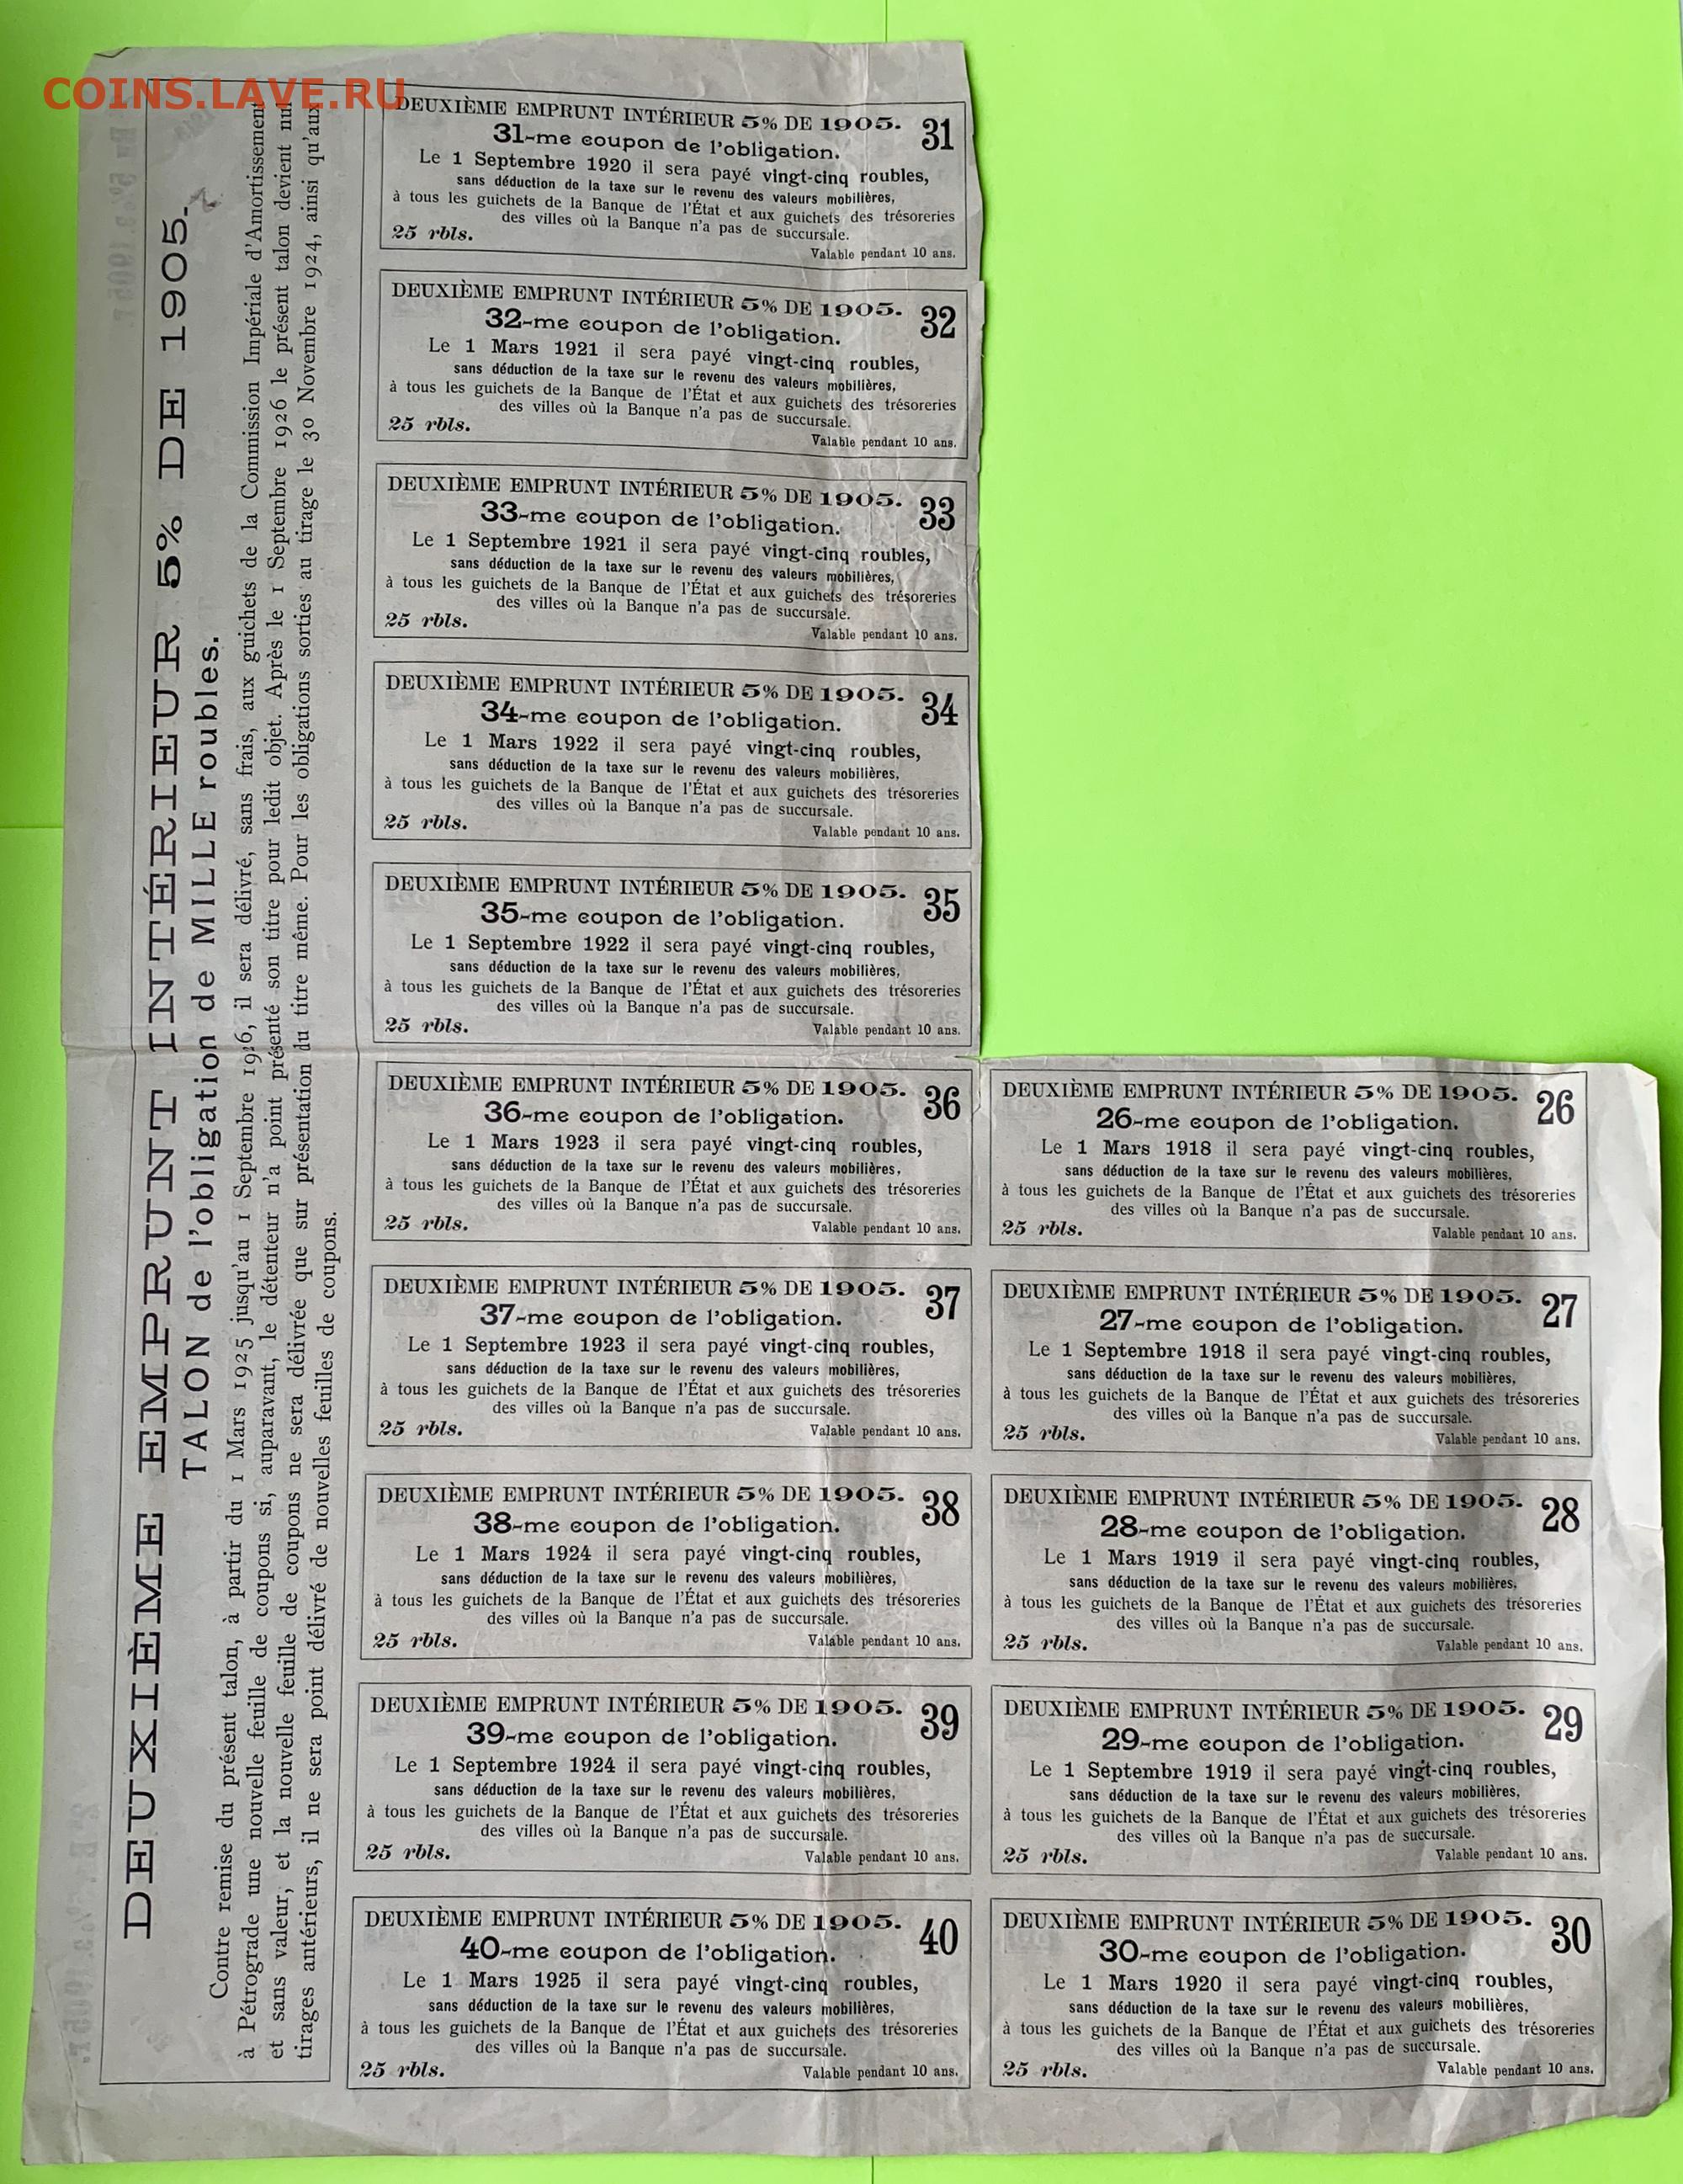 COINS.LAVE.RU
DEUXIÈME EMPRUNT INTÉRIEUR 5% DE 1905.
TALON de l'obligation de MILLE roubles.
Contre remise du présent talon, à partir du 1 Mars 1925 jusqu'au 1 Septembre 1926, il sera délivré, sans frais, aux guichets de la Commission Impériale d'Amortissement
à Pétrograde une nouvelle feuille de coupons si, auparavant, le détenteur n'a point présenté son titre pour ledit objet. Après le 1 Septembre 1926 le présent talon devient nul
et sans valeur, et la nouvelle feuille de coupons ne sera délivrée que sur présentation du titre même. Pour les obligations sorties au tirage le 30 Novembre 1924, ainsi qu'aux
tirages antérieurs, il ne sera point délivré de nouvelles feuilles de coupons.
DEUXIÈME EMPRUNT INTÉRIEUR 5% DE 1905. 31
31-me coupon de l'obligation.
Le 1 Septembre 1920 il sera payé vingt-cinq roubles,
sans déduction de la taxe sur le revenu des valeurs mobilières,
à tous les guichets de la Banque de l'État et aux guichets des trésoreries
des villes où la Banque n'a pas de succursale.
25 rbls.
Valable pendant 10 ans.
DEUXIÈME EMPRUNT INTÉRIEUR 5% DE 1905. 32
32-me coupon de l'obligation.
Le 1 Mars 1921 il sera payé vingt-cinq roubles,
sans déduction de la taxe sur le revenu des valeurs mobilières,
à tous les guichets de la Banque de l'État et aux guichets des trésoreries
des villes où la Banque n'a pas de succursale.
25 rbls.
Valable pendant 10 ans.
DEUXIÈME EMPRUNT INTÉRIEUR 5% DE 1905. 33
33-me coupon de l'obligation.
Le 1 Septembre 1921 il sera payé vingt-cinq roubles,
sans déduction de la taxe sur le revenu des valeurs mobilières,
à tous les guichets de la Banque de l'État et aux guichets des trésoreries
des villes où la Banque n'a pas de succursale.
25 rbls.
Valable pendant 10 ans.
DEUXIÈME EMPRUNT INTÉRIEUR 5% DE 1905. 34
34-me coupon de l'obligation.
Le 1 Mars 1922 il sera payé vingt-cinq roubles,
sans déduction de la taxe sur le revenu des valeurs mobilières,
à tous les guichets de la Banque de l'État et aux guichets des trésoreries
des villes où la Banque n'a pas de succursale.
25 rbls.
Valable pendant 10 ans.
DEUXIÈME EMPRUNT INTÉRIEUR 5% DE 1905. 35
35-me coupon de l'obligation.
Le 1 Septembre 1922 il sera payé vingt-cinq roubles,
sans déduction de la taxe sur le revenu des valeurs mobilières,
à tous les guichets de la Banque de l'État et aux guichets des trésoreries
des villes où la Banque n'a pas de succursale.
25 rbls.
Valable pendant 10 ans.
DEUXIÈME EMPRUNT INTÉRIEUR 5% DE 1905. 36
36-me coupon de l'obligation.
Le 1 Mars 1923 il sera payé vingt-cinq roubles,
sans déduction de la taxe sur le revenu des valeurs mobilières,
à tous les guichets de la Banque de l'État et aux guichets des trésoreries
des villes où la Banque n'a pas de succursale.
25 rbls.
Valable pendant 10 ans.
DEUXIÈME EMPRUNT INTÉRIEUR 5% DE 1905. 37
37-me coupon de l'obligation.
Le 1 Septembre 1923 il sera payé vingt-cinq roubles,
sans déduction de la taxe sur le revenu des valeurs mobilières,
à tous les guichets de la Banque de l'État et aux guichets des trésoreries
des villes où la Banque n'a pas de succursale.
25 rbls.
Valable pendant 10 ans.
DEUXIÈME EMPRUNT INTÉRIEUR 5% DE 1905. 38
38-me coupon de l'obligation.
Le 1 Mars 1924 il sera payé vingt-cinq roubles,
sans déduction de la taxe sur le revenu des valeurs mobilières,
à tous les guichets de la Banque de l'État et aux guichets des trésoreries
des villes où la Banque n'a pas de succursale.
25 rbls.
Valable pendant 10 ans.
DEUXIÈME EMPRUNT INTÉRIEUR 5% DE 1905. 39
39-me coupon de l'obligation.
Le 1 Septembre 1924 il sera payé vingt-cinq roubles,
sans déduction de la taxe sur le revenu des valeurs mobilières,
à tous les guichets de la Banque de l'État et aux guichets des trésoreries
des villes où la Banque n'a pas de succursale.
25 rbls.
Valable pendant 10 ans.
DEUXIÈME EMPRUNT INTÉRIEUR 5% DE 1905. 40
40-me coupon de l'obligation.
Le 1 Mars 1925 il sera payé vingt-cinq roubles,
sans déduction de la taxe sur le revenu des valeurs mobilières,
à tous les guichets de la Banque de l'État et aux guichets des trésoreries
des villes où la Banque n'a pas de succursale.
25 rbls.
Valable pendant 10 ans.
DEUXIÈME EMPRUNT INTÉRIEUR 5% DE 1905. 26
26-me coupon de l'obligation.
Le 1 Mars 1918 il sera payé vingt-cinq roubles,
sans déduction de la taxe sur le revenu des valeurs mobilières,
à tous les guichets de la Banque de l'État et aux guichets des trésoreries
des villes où la Banque n'a pas de succursale.
25 rbls.
Valable pendant 10 ans.
DEUXIÈME EMPRUNT INTÉRIEUR 5% DE 1905. 27
27-me coupon de l'obligation.
Le 1 Septembre 1918 il sera payé vingt-cinq roubles,
sans déduction de la taxe sur le revenu des valeurs mobilières,
à tous les guichets de la Banque de l'État et aux guichets des trésoreries
des villes où la Banque n'a pas de succursale.
25 rbls.
Valable pendant 10 ans.
DEUXIÈME EMPRUNT INTÉRIEUR 5% DE 1905. 28
28-me coupon de l'obligation.
Le 1 Mars 1919 il sera payé vingt-cinq roubles,
sans déduction de la taxe sur le revenu des valeurs mobilières,
à tous les guichets de la Banque de l'État et aux guichets des trésoreries
des villes où la Banque n'a pas de succursale.
25 rbls.
Valable pendant 10 ans.
DEUXIÈME EMPRUNT INTÉRIEUR 5% DE 1905. 29
29-me coupon de l'obligation.
Le 1 Septembre 1919 il sera payé vingt-cinq roubles,
sans déduction de la taxe sur le revenu des valeurs mobilières,
à tous les guichets de la Banque de l'État et aux guichets des trésoreries
des villes où la Banque n'a pas de succursale.
25 rbls.
Valable pendant 10 ans.
DEUXIÈME EMPRUNT INTÉRIEUR 5% DE 1905. 30
30-me coupon de l'obligation.
Le 1 Mars 1920 il sera payé vingt-cinq roubles,
sans déduction de la taxe sur le revenu des valeurs mobilières,
à tous les guichets de la Banque de l'État et aux guichets des trésoreries
des villes où la Banque n'a pas de succursale.
25 rbls.
Valable pendant 10 ans.